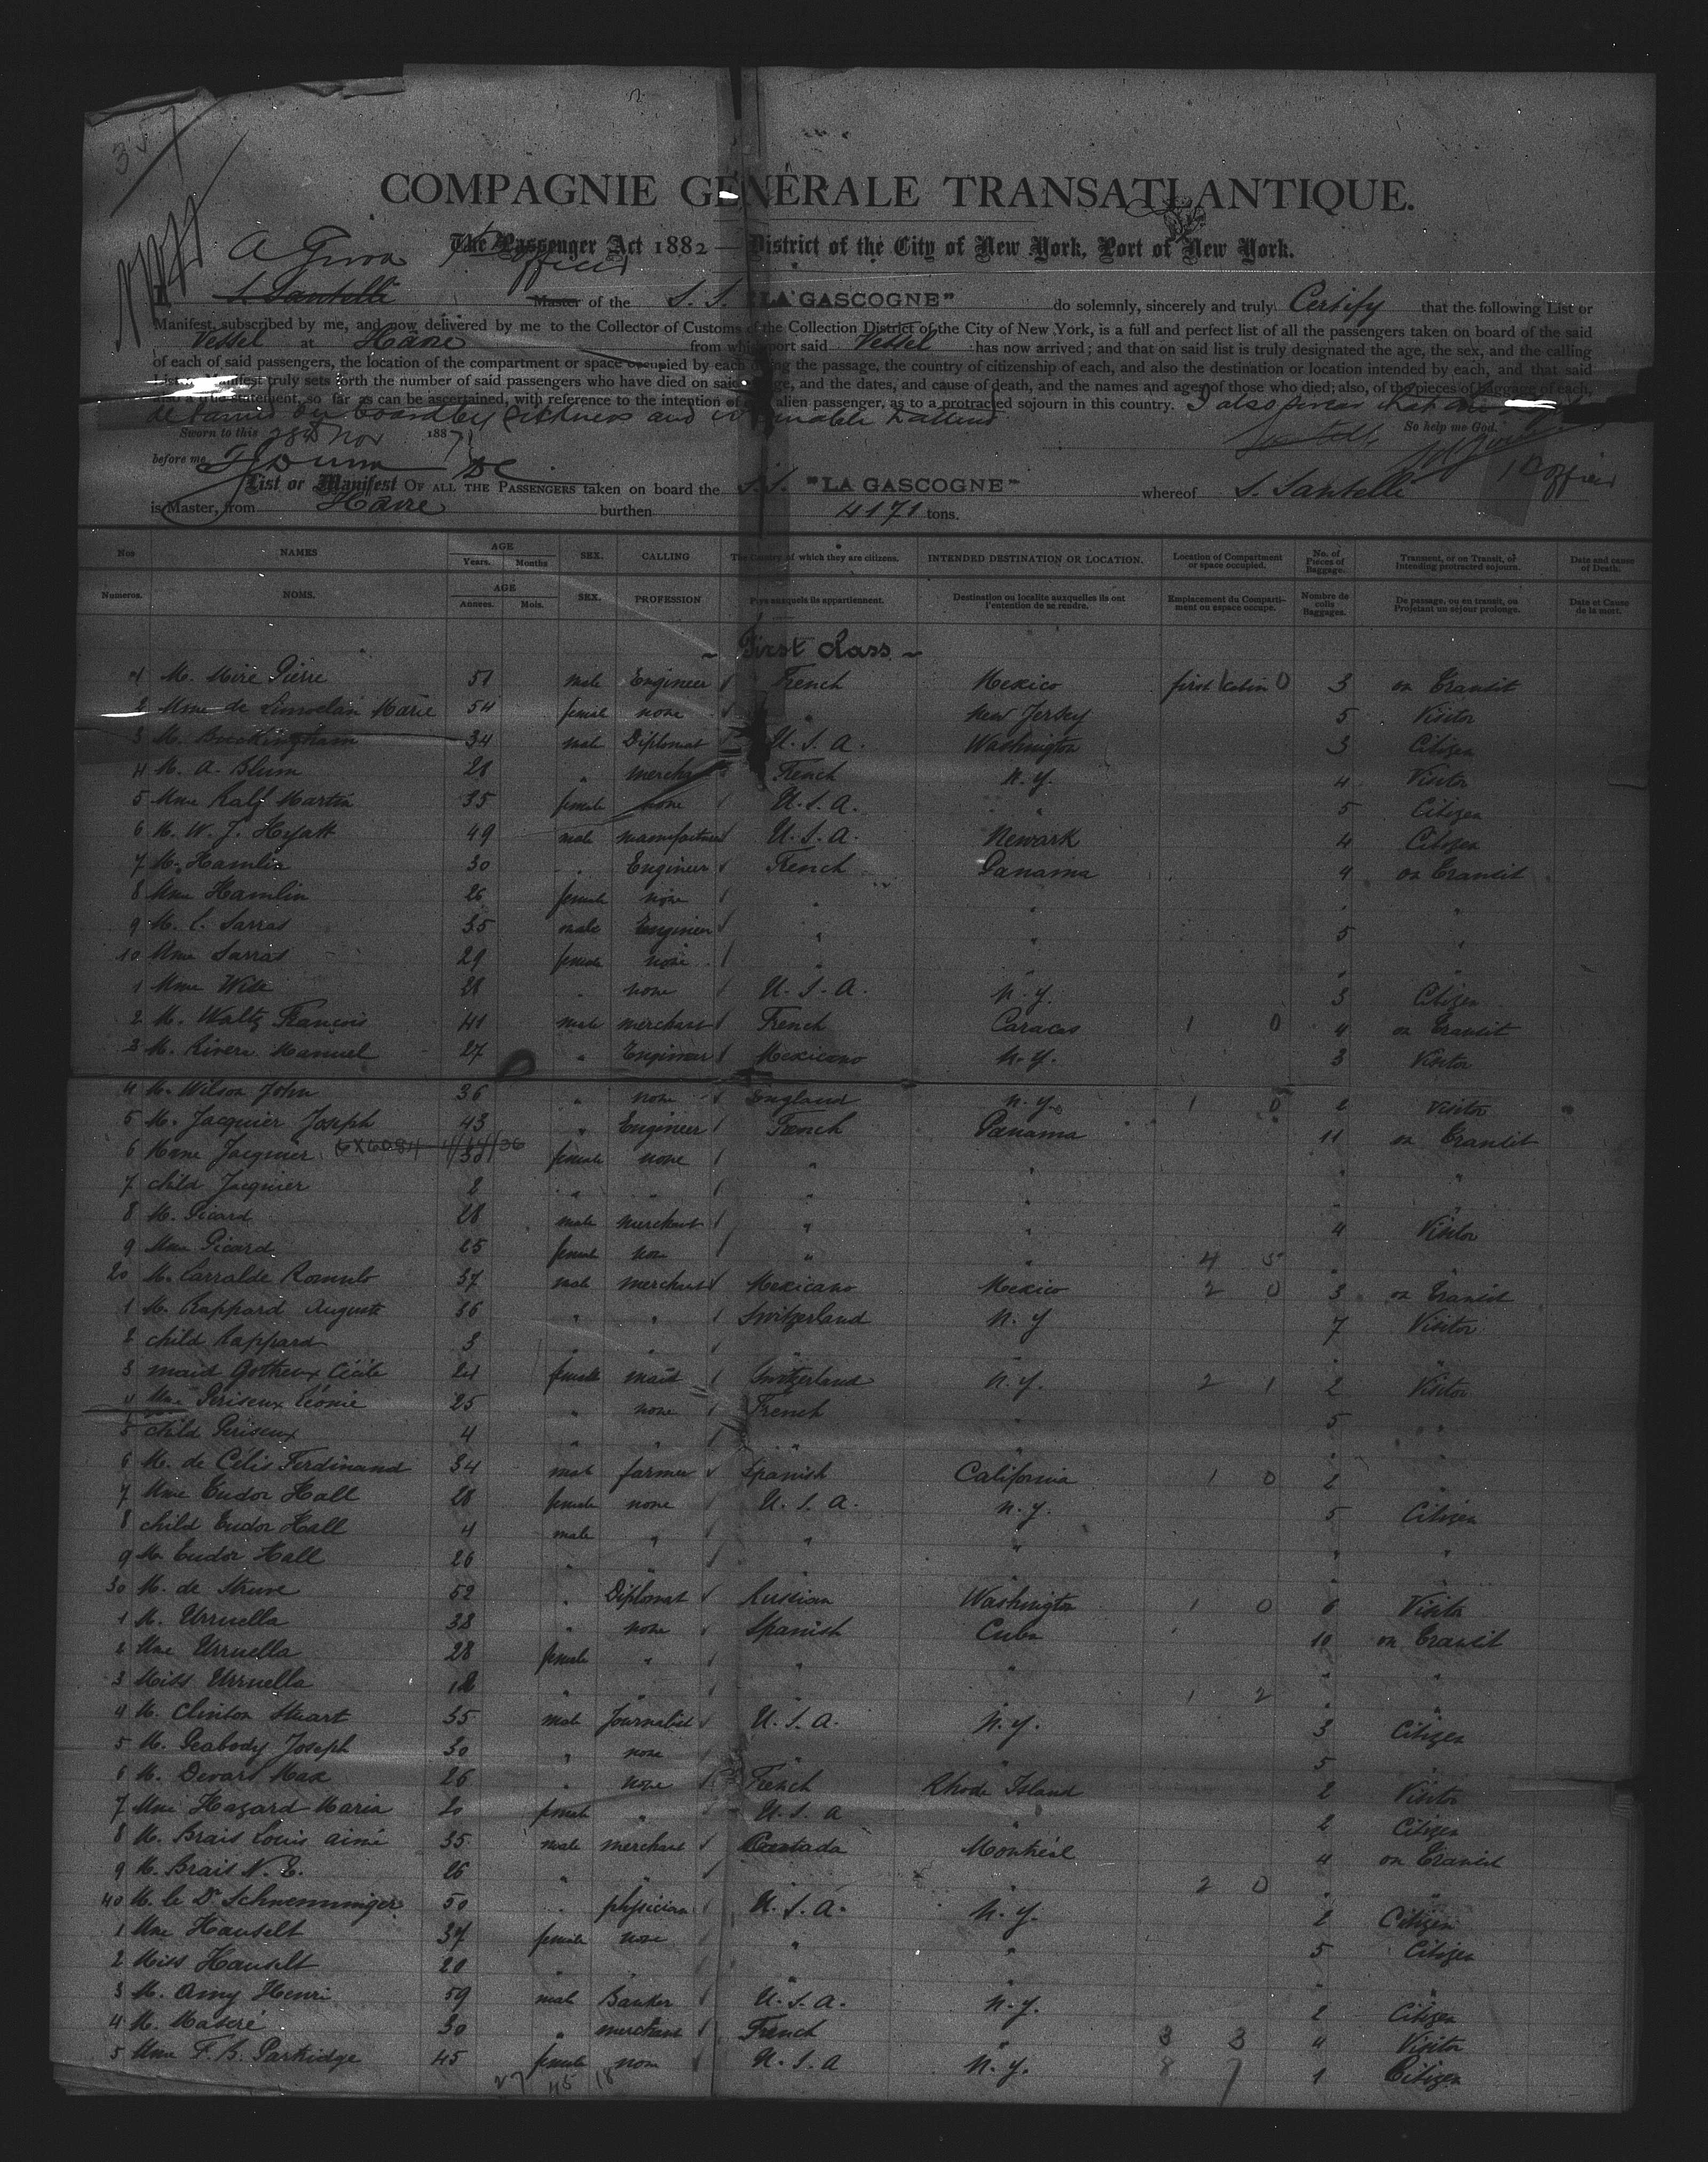 357
COMPAGNIE GÉNÉRALE TRANSATLANTIQUE.
The Passenger Act 1882 — District of the City of New York, Port of New York.
Officer
I, S. Santelli Master of the S. S. "LA GASCOGNE" do solemnly, sincerely and truly Certify that the following List or
Manifest, subscribed by me, and now delivered by me to the Collector of Customs of the Collection District of the City of New York, is a full and perfect list of all the passengers taken on board of the said
Vessel at Havre from which port said Vessel has now arrived; and that on said list is truly designated the age, the sex, and the calling
of each of said passengers, the location of the compartment or space occupied by each during the passage, the country of citizenship of each, and also the destination or location intended by each, and that said
List or Manifest truly sets forth the number of said passengers who have died on said voyage, and the dates, and cause of death, and the names and ages of those who died; also, of the pieces of baggage of each,
and a true statement, so far as can be ascertained, with reference to the intention of each alien passenger, as to a protracted sojourn in this country. I also swear that
detained on board by sickness and is unable to attend
Sworn to this 28th Nov 1887 So help me God.
before me
List or Manifest OF ALL THE PASSENGERS taken on board the S.S. "LA GASCOGNE" whereof S. Santelli
is Master, from Havre burthen 4171 tons.
Nos NAMES AGE Years. Months SEX. CALLING The Country of which they are citizens. INTENDED DESTINATION OR LOCATION. Location of Compartment or space occupied. No. of Pieces of Baggage. Transient, or on Transit, or Intending protracted sojourn. Date and cause of Death.
Numeros. NOMS. AGE Annees. Mois. SEX. PROFESSION Pays auxquels ils appartiennent. Destination ou localite auxquelles ils ont l'entention de se rendre. Emplacement du Compartiment ou espace occupe. Nombre de colis Baggages. De passage, ou en transit, ou Projetant un sejour prolonge. Date et Cause de la mort.
~ First class ~
1 M. Mire Pierre 51 male Engineer French Mexico first Cabin 0 3 on Transit
2 Mme de Limoelan Marie 54 female none " New Jersey 5 Visitor
3 M. Buckingham 34 male Diplomat U.S.A. Washington 3 Citizen
4 M. A. Blum 28 " merchant French N.Y. 4 Visitor
5 Mme Ralf Martin 35 female none U.S.A. " 5 Citizen
6 M. W. J. Hyatt 49 male manufacturer U.S.A. Newark 4 Citizen
7 M. Hamlin 30 " Engineer French Panama 4 on Transit
8 Mme Hamlin 26 female none " " " "
9 M. C. Sarras 35 male Engineer " " 5 "
10 Mme Sarras 29 female none " " " "
1 Mme Wise 28 " none U.S.A. N.Y. 3 Citizen
2 M. Waltz François 41 male merchant French Caracas 1 0 4 on Transit
3 M. Rivera Manuel 27 " Engineer Mexicano N.Y. 3 Visitor
4 M. Wilson John 36 " none England N.Y. 1 0 2 Visitor
5 M. Jacquier Joseph 43 " Engineer French Panama 11 on Transit
6 Mme Jacquier 30 female none " " " "
7 child Jacquier 2 " " " " " "
8 M. Picard 28 male merchant " " 4 Visitor
9 Mme Picard 25 female non " " 4 5 "
20 M. Larralde Romulo 37 male merchant Mexicano Mexico 2 0 3 on Transit
1 M. Rappard Auguste 36 " " Switzerland N.Y 7 Visitor
2 child Rappard 3 " " " " " "
3 maid Gotheux Cécile 21 female maid Switzerland N.Y. 2 1 2 Visitor
4 Mme Periseux Léonie 25 " none French " 5 "
5 child Periseux 4 " " " " " "
6 M. de Célis Ferdinand 34 male farmer Spanish California 1 0 2 "
7 Mme Tudor Hall 28 female none U.S.A. N.Y. 5 Citizen
8 child Tudor Hall 4 male " " " " "
9 M. Tudor Hall 26 " " " "
30 M. de Struve 52 " Diplomat Russian Washington 1 0 6 Visitor
1 M. Urruella 38 " none Spanish Cuba 10 on Transit
2 Mme Urruella 28 female " " " " "
3 Miss Urruella " " " " 1 2 " "
4 M. Clinton Stuart 35 male Journalist U.S.A. N.Y. 3 Citizen
5 M. Peabody Joseph 30 " none " " 5 "
6 M. Devars Max 26 " none French Rhode Island 2 Visitor
7 Mme Hazard Maria 20 female " U.S.A " 2 Citizen
8 M. Brais Louis ainé 35 male merchant Canada Montréal 4 on Transit
9 M. Brais N. E. 26 " " " " 2 0 " "
40 M. le Dr Schnemminger 50 " physician U.S.A. N.Y. 2 Citizen
1 Mme Hauselt 37 female none " " 5 Citizen
2 Miss Hauselt 20 " " " " " "
3 M. Amy Henri 59 male Banker U.S.A. N.Y. 2 Citizen
4 M. Mascré 30 " merchant French " 3 3 4 Visitor
5 Mme F. B. Partridge 45 female non U.S.A N.Y. 8 7 1 Citizen
27 45 18